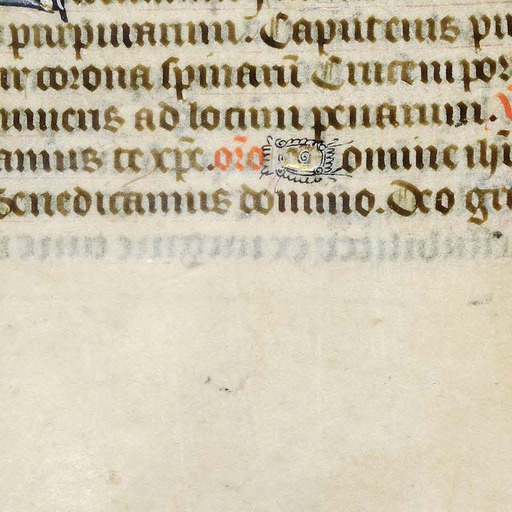 purpuratum. Caput eius pu
ur corona spinarū Crucem por
humeris ad locum penarum. V̄
amus te xp̄e. or̄o Domine ihū
Benedicamus domino. Deo gr